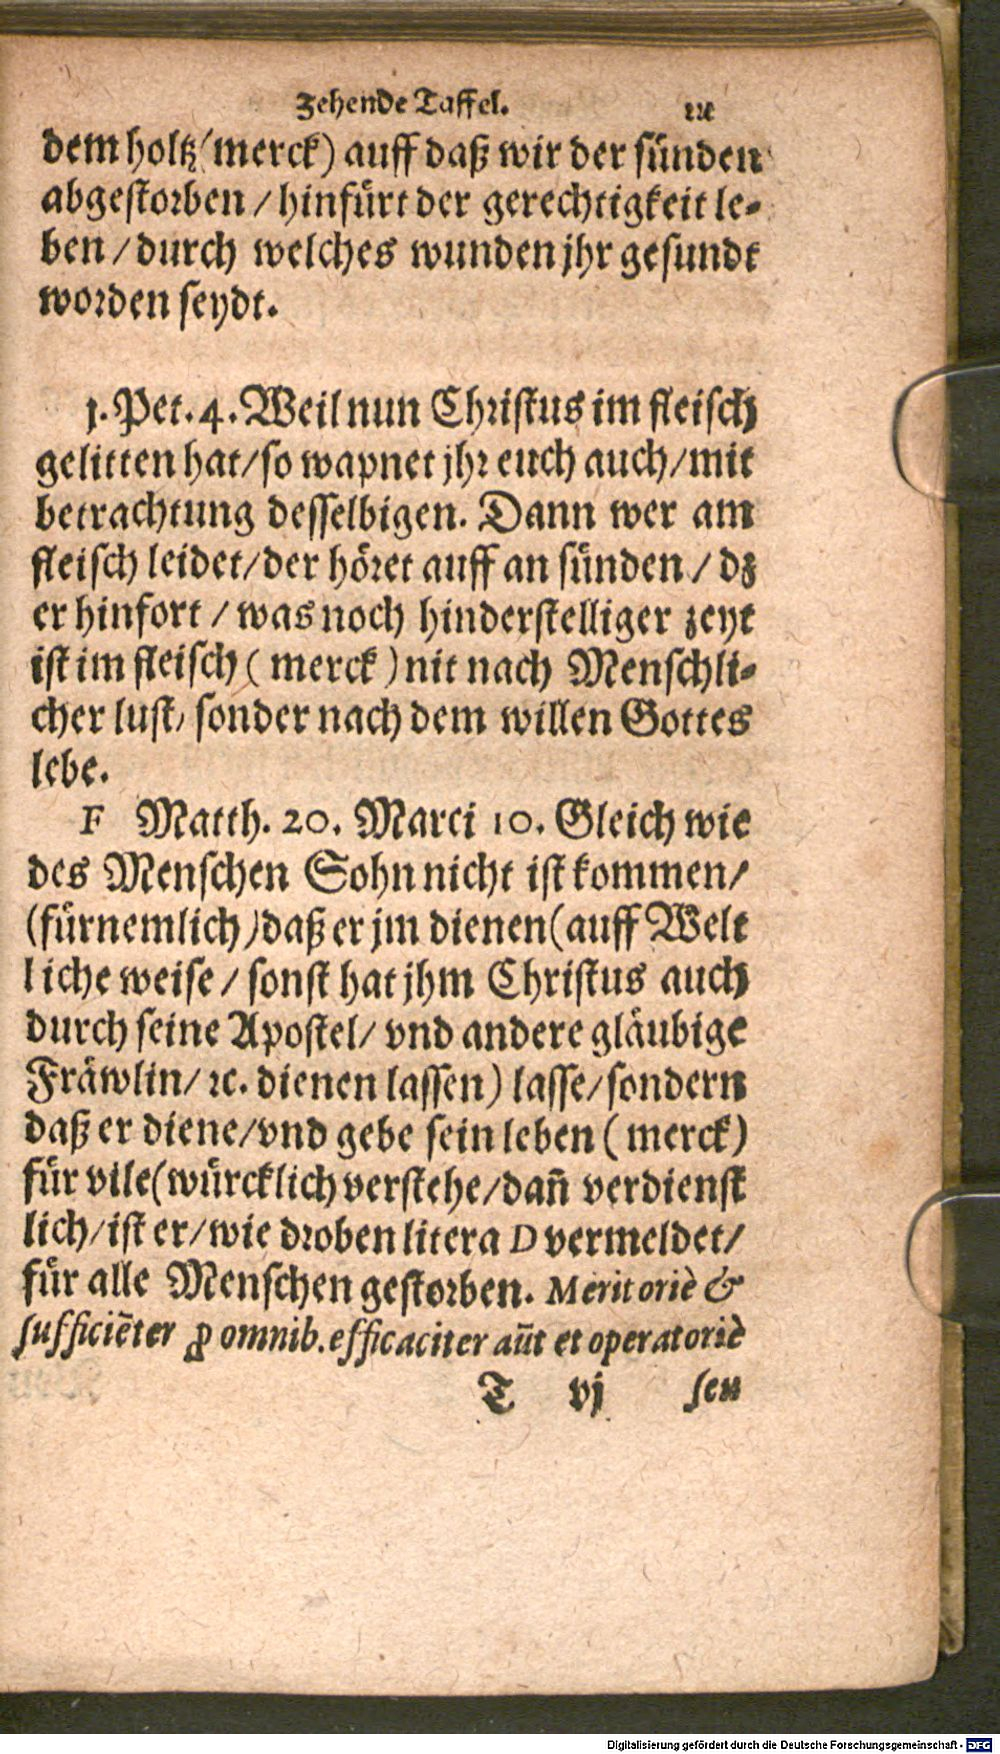 Zehende Taffel.
dem holtz (merck) auff daß wir der sünden
abgestorben / hinfürt der gerechtigkeit le-
ben / durch welches wunden jhr gesundt
worden seydt.
1. Pet. 4. Weil nun Christus im fleisch
gelitten hat/ so wapnet jhr euch auch/ mit
betrachtung desselbigen. Dann wer am
fleisch leidet/ der höret auff an sünden / dz
er hinfort / was noch hinderstelliger zeyt
ist im fleisch ( merck ) nit nach Menschli-
cher lust, sonder nach dem willen Gottes
lebe.
F Matth. 20. Marci 10. Gleich wie
des Menschen Sohn nicht ist kommen/
(fürnemlich) daß er jm dienen (auff Welt
liche weise / sonst hat jhm Christus auch
durch seine Apostel/ vnd andere gläubige
Fräwlin/ ꝛc. dienen lassen) lasse/ sondern
daß er diene/ vnd gebe sein leben ( merck)
für vile (würcklich verstehe/ dañ verdienst
lich/ ist er/ wie droben litera D vermeldet/
für alle Menschen gestorben. Meritoriè &
sufficiẽter ꝓ omnib. efficaciter aũt et operatoriè
T vj seu
Digitalisierung gefördert durch die Deutsche Forschungsgemeinschaft - DFG